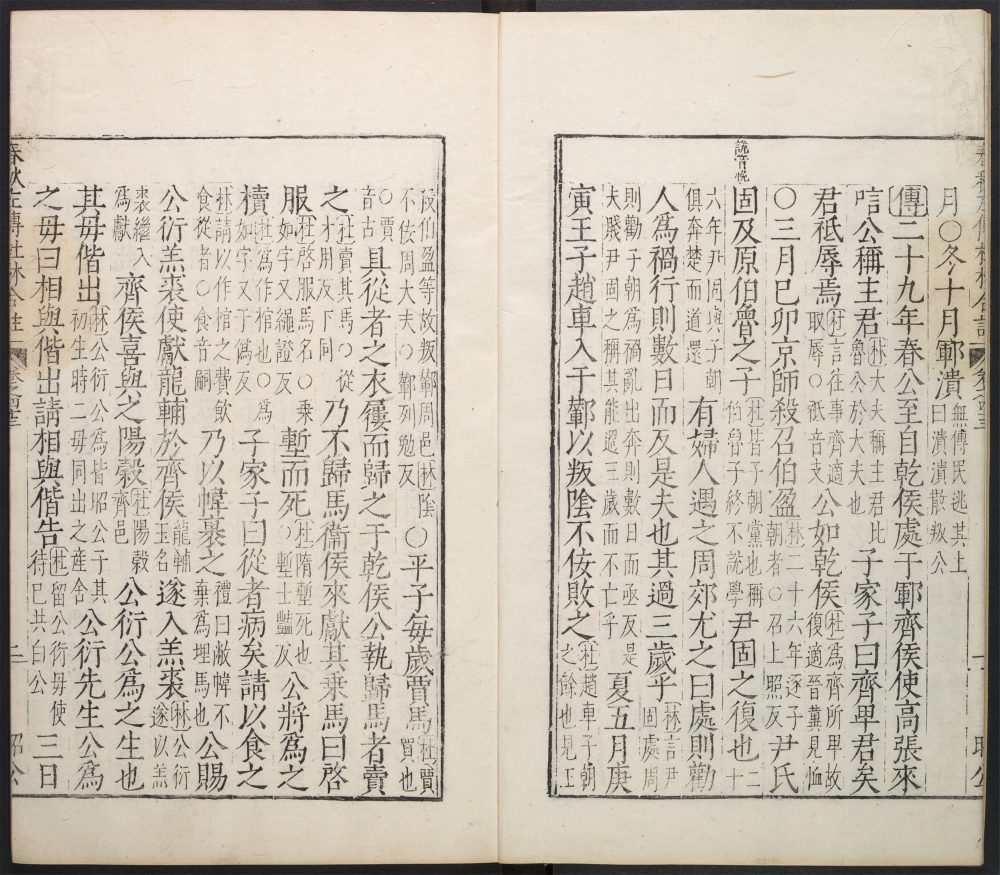 月○冬十月鄆潰無傳民逃其上曰潰潰散叛公
傳二十九年春公至自乾侯處于鄆齊侯使高張來
唁公稱主君林大夫稱主君比魯公於大夫也子家子曰齊卑君矣
君祗辱焉杜言往事齊適取辱○祗音支公如乾侯杜為齊所卑故復適晉冀見恤
○三月己卯京師殺召伯盈林二十六年逐子朝者○召上照反尹氏
固及原伯魯之子杜皆子朝黨也稱伯魯子終不說學尹固之復也二十
六年尹固與子朝俱奔楚而道還有婦人遇之周郊尤之曰處則勸
人為禍行則數日而反是夫也其過三歲乎林言尹固處周
則勸子朝為禍亂出奔則數日而亟反是夫賤尹固之稱其能過三歲而不亡乎夏五月庚
寅王子趙車入于鄻以叛陰不佞敗之杜趙車子朝之餘也見王
說音悅
昭公
殺伯盈等故叛鄻周邑林陰不佞周大夫○鄻列勉反○平子每歲賈馬杜賈買也
○賈音古具從者之衣屨而歸之于乾侯公執歸馬者賣
之杜賣其馬○從才用反下同乃不歸馬衛侯來獻其乘馬曰啓
服杜啓服馬名○乘如字又繩證反塹而死杜隋塹死也○塹士豔反公將為之
櫝杜為作棺也○為如字又于偽反子家子曰從者病矣請以食之
林請以作棺之費飲食從者○食音嗣乃以幃裹之禮曰敝幃不棄為埋馬也公賜
公衍羔裘使獻龍輔於齊侯龍輔玉名遂入羔裘林公衍遂以羔
裘繼入為獻齊侯喜與之陽穀杜陽穀齊邑公衍公為之生也
其母偕出林公衍公為皆昭公子其初生時二母同出之產舍公衍先生公為
之母曰相與偕出請相與偕告杜留公衍母使待己共白公三日
春秋左傳杜林合注
二
昭公